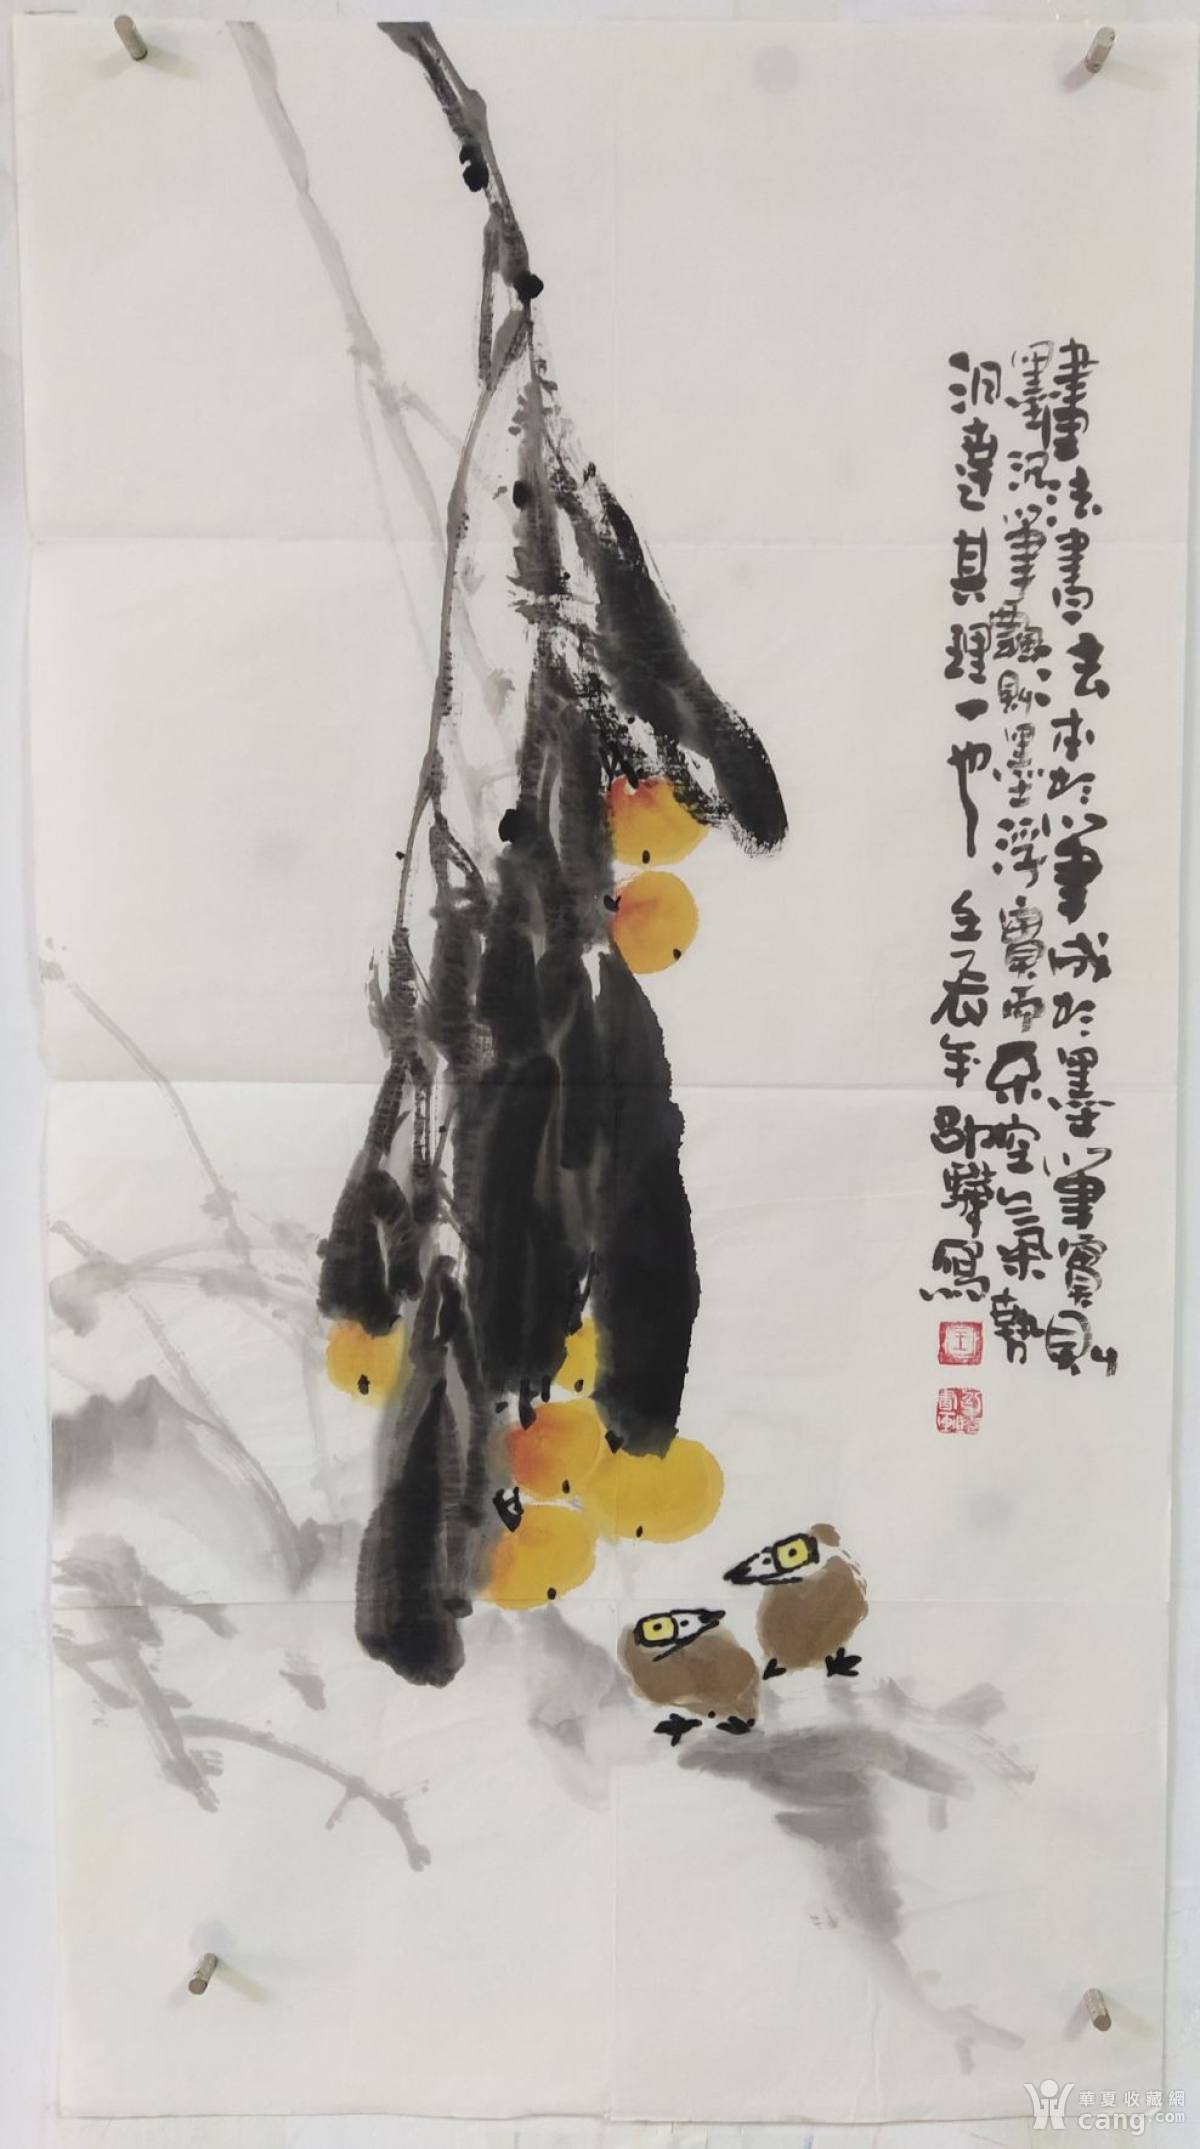 畫法書法本於筆成於墨筆實則
墨沉筆飄則墨浮實而不空氣勢
洞達其理一也 壬辰年邵驊寫
華夏收藏網
cang.com